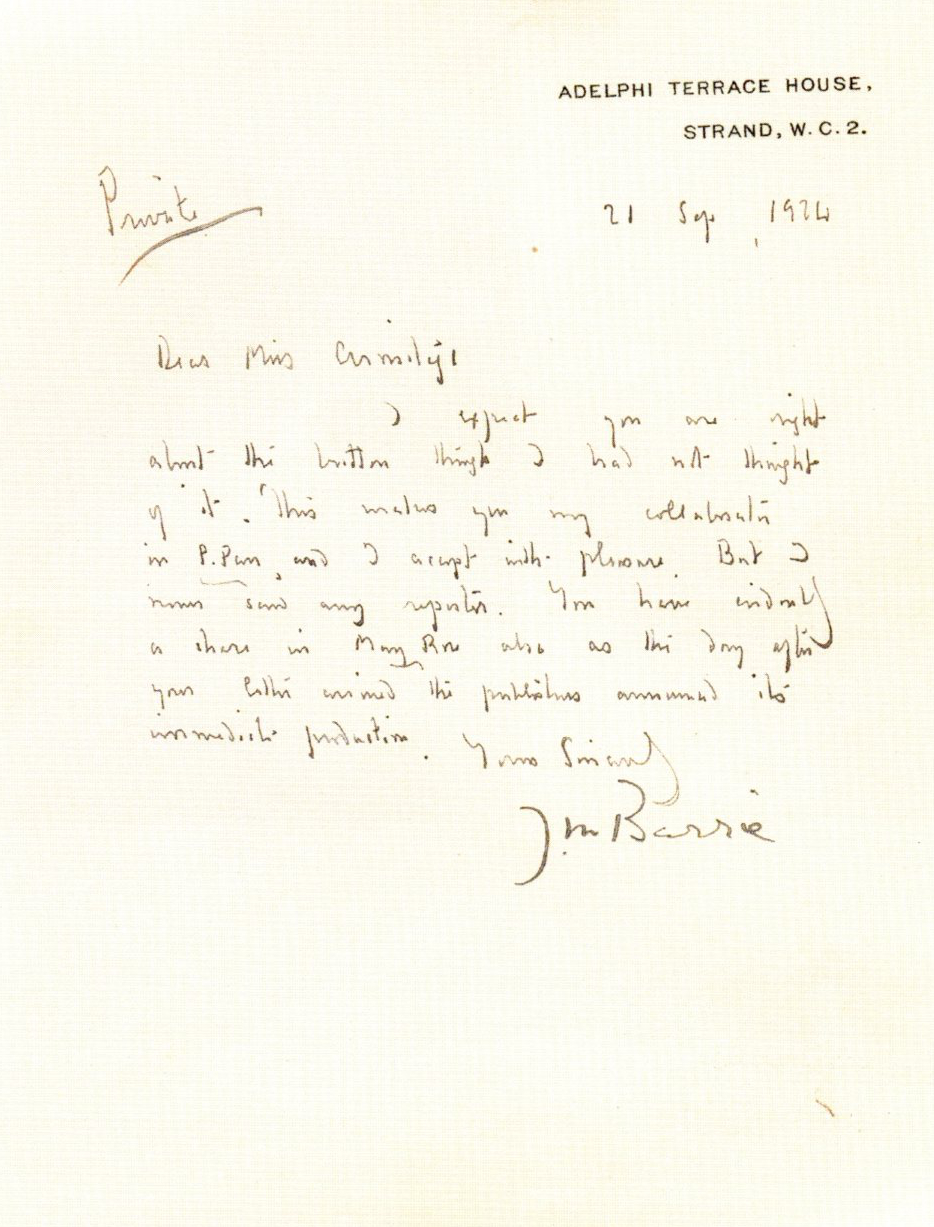 ADELPHI TERRACE HOUSE,
STRAND, W.C.2.
Private
21 Sep 1924
Dear Miss
I expect you are right
about the button though I had not thought
of it. This makes you my collaborator
in P. Pan, and I accept with pleasure. But I
never saw any reporter. You have evidently
a share in Mary Rose also as the day after
your letter arrived the publishers announced its
immediate production. Yours Sincerely
J M Barrie